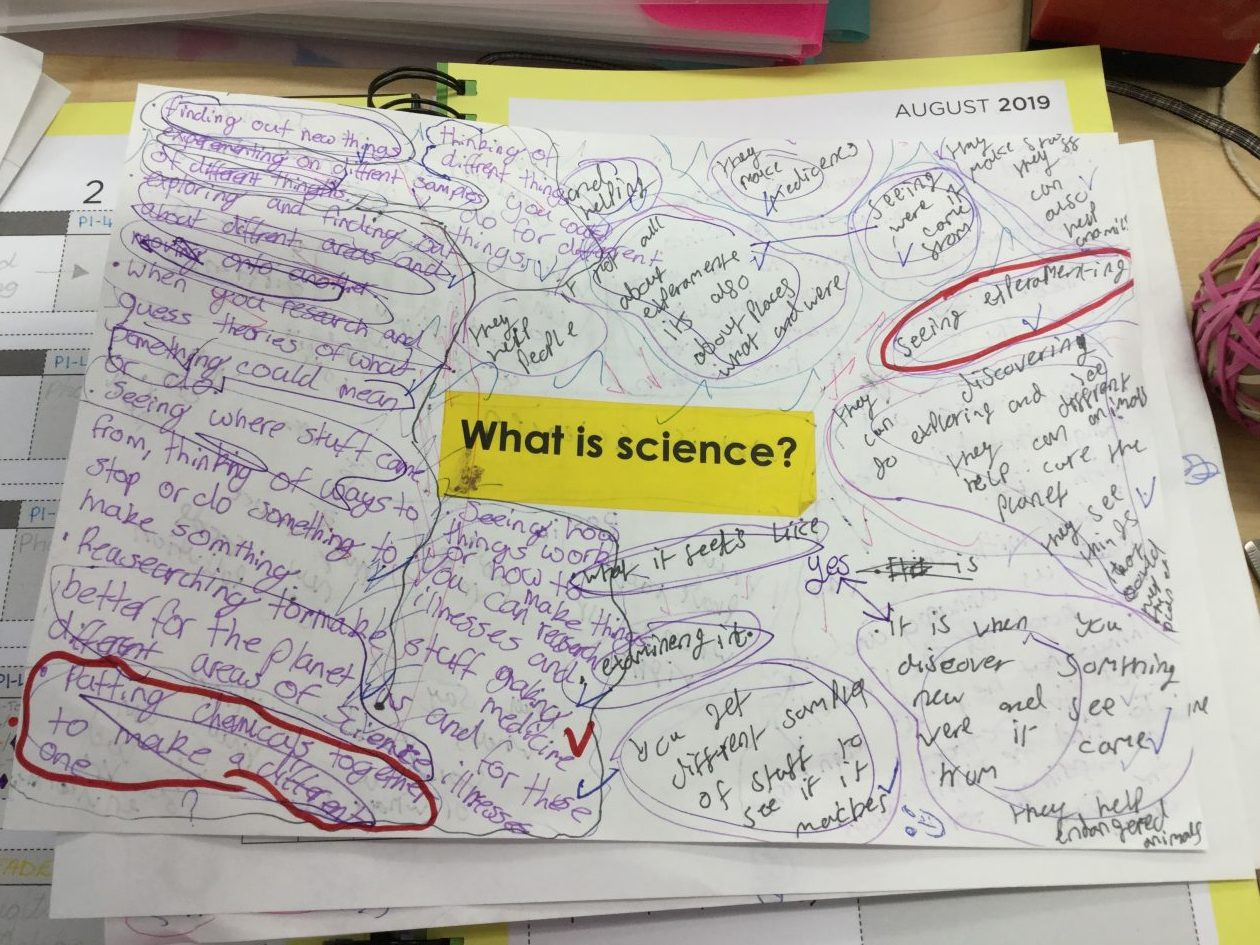 AUGUST 2019
2
P1-4
• finding out new things
experementing on diffrent samples
of different things.
exploring and finding out
about diffrent areas and
moving onto another.
• When you research and
guess theories of what
something could mean
or do.
• Seeing where stuff came
from, thinking of ways to
stop or do something to
make somthing
• Reasearching to make
better for the planet
different areas of science
• Putting chemicals together
to make a different
one
?
thinking of
different things
you could
do for different
things
and
helping
they
make
medicens
seeing
were it
came
from
they
make
they
can
also
help
animils
it
not all
about
experamente
its also
about places
what and were
they
help
people
seeing experamenting
What is science?
they
can
do
discovering
exploring and see
they can different
help cure the animals
planet
they see
things
that
could
Seeing how
things work
or how to
make things
you can research
illnesses and
stuff making
medicine
and for these
illnesses
what it feels like
examining it.
yes
is
you get
different sample
of stuff to
see if it
matches
• It is when you
discover somthing
new and see
were it came
from
they help
endangered
animals